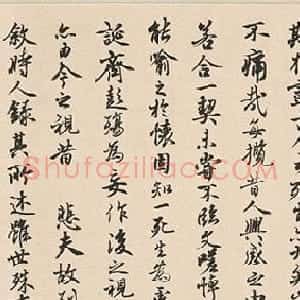 不痛哉每攬昔人興感之由
若合一契未嘗不臨文嗟悼
能喻之於懷固知一死生為
誕齊彭殤為妄作後之視
亦由今之視昔 悲夫故列
敘時人錄其所述雖世殊
Shufaziliao.com